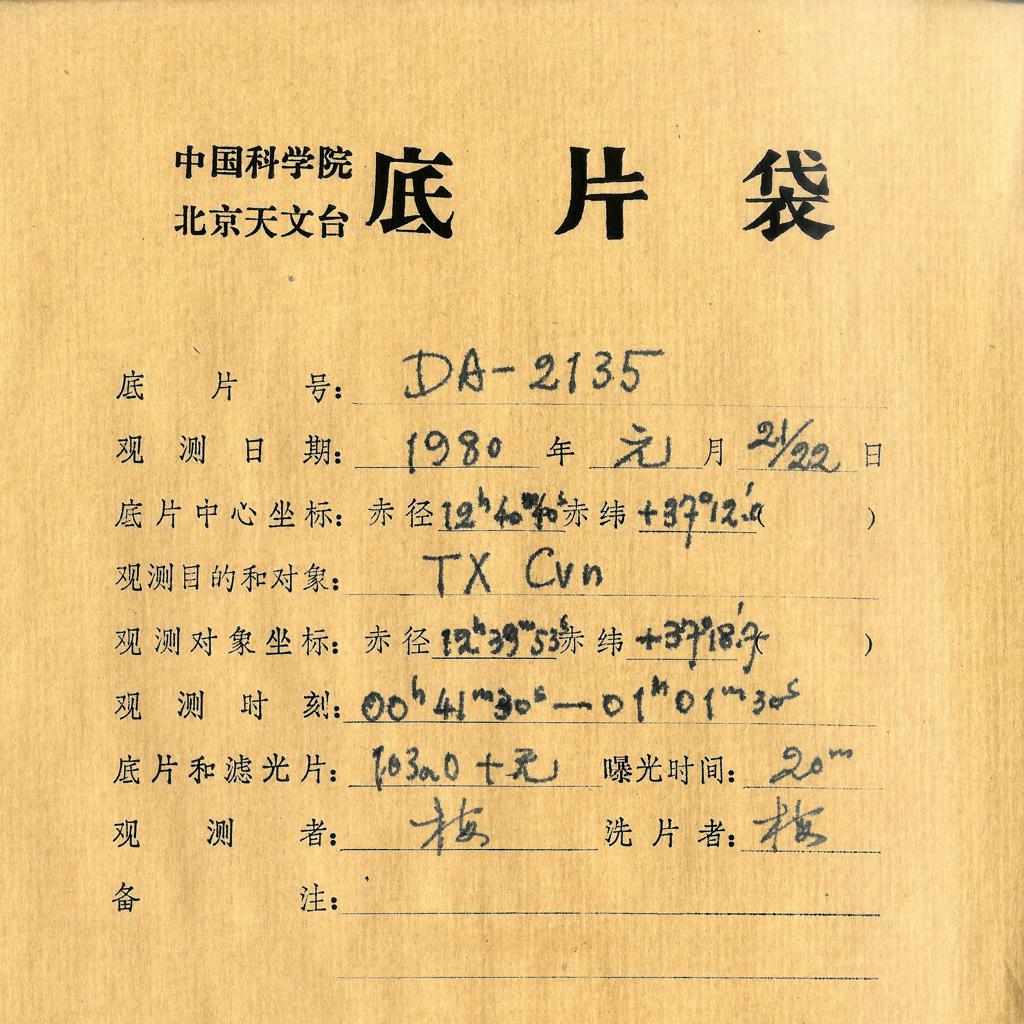 中国科学院
北京天文台 底片袋
底片号: DA-2135
观测日期: 1980 年 元 月 21/22 日
底片中心坐标: 赤径 12h40m40s 赤纬 +37°12'.9 ( )
观测目的和对象: TX Cvn
观测对象坐标: 赤径 12h39m53s 赤纬 +37°18'.7 ( )
观测时刻: 00h41m30s—01h01m30s
底片和滤光片: 103a0+无 曝光时间: 20m
观测者: 梅 洗片者: 梅
备注: